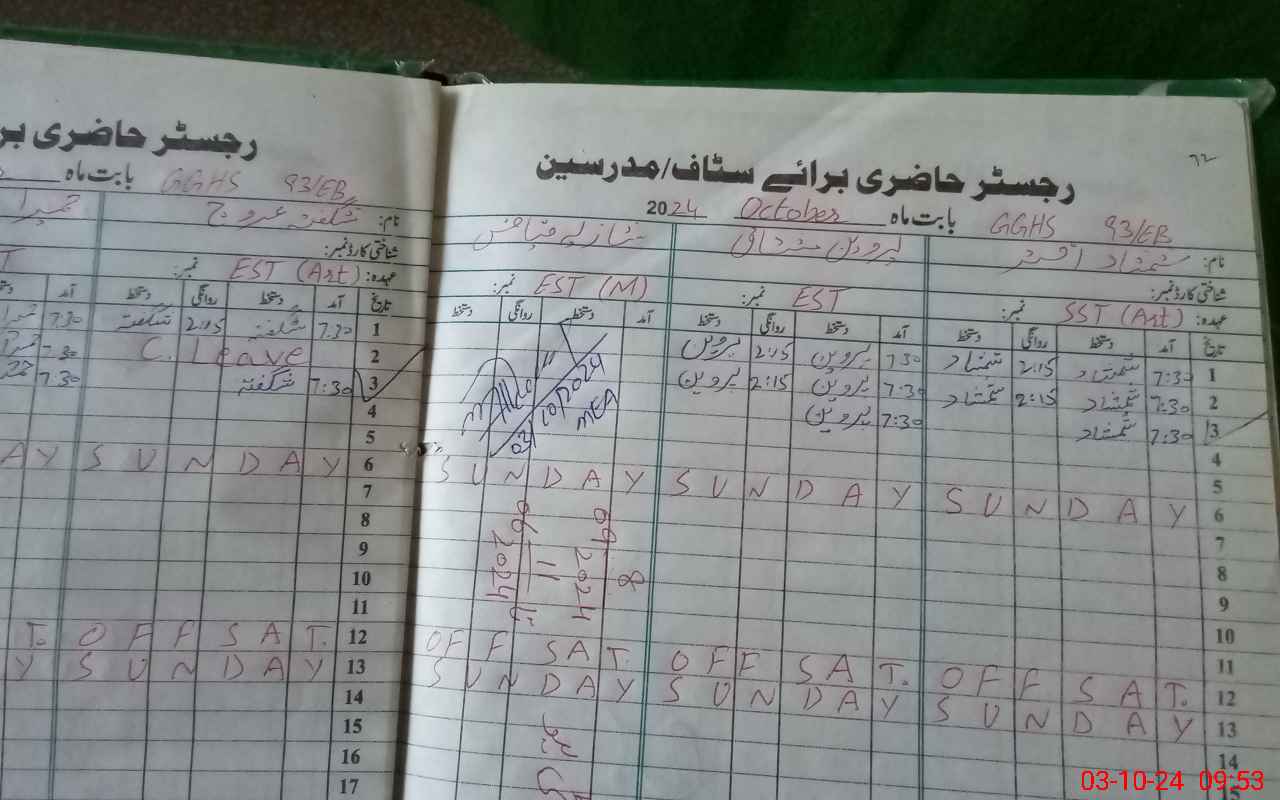 رجسٹر حاضری برائے سٹاف/مدرسین
72
بابت ماہ October 2024 GGHS 93/EB
نام: شمشاد اختر پروین مشتاق شازیہ فیاض
شناختی کارڈ نمبر:
عہدہ: SST (Art) نمبر: EST نمبر: EST (M) نمبر:
تاریخ آمد دستخط روانگی دستخط آمد دستخط روانگی دستخط آمد دستخط روانگی دستخط
1 7:30 شمشاد 2:15 شمشاد 7:30 پروین 2:15 پروین
2 7:30 شمشاد 2:15 شمشاد 7:30 پروین 2:15 پروین
3 7:30 شمشاد 7:30 پروین
03/10/2024
MEA
4
5
6 SUNDAY SUNDAY SUNDAY
7
8
9
10
11
12 OFF SAT. OFF SAT. OFF SAT.
13 SUNDAY SUNDAY SUNDAY
14
15
09 2024
11 2024
رجسٹر حاضری بر
بابت ماہ GGHS 93/EB
نام: شگفتہ عروج حمیرا
شناختی کارڈ نمبر:
عہدہ: EST (Art) نمبر:
تاریخ آمد دستخط روانگی دستخط آمد
1 7:30 شگفتہ 2:15 شگفتہ 7:30
2 C. Leave 7:30
3 7:30 شگفتہ 7:30
4
5
6 SUNDAY AY
7
8
9
10
11
12 OFF SAT. T.
13 SUNDAY Y
14
15
16
17
03-10-24 09:53